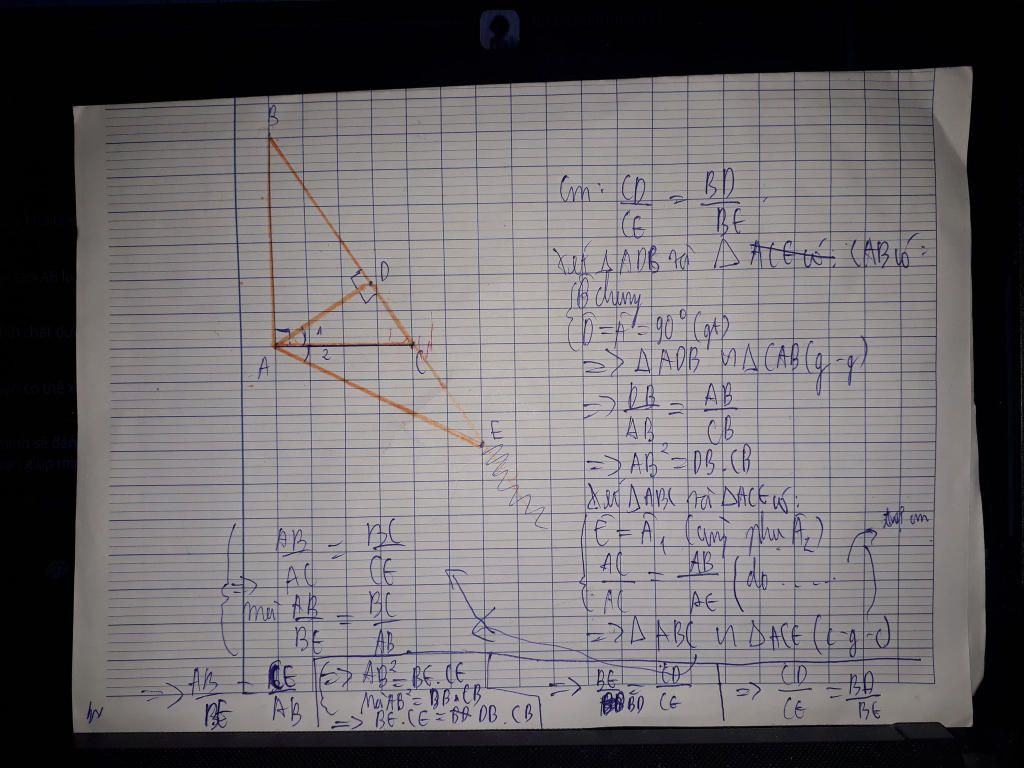 B
D
1
2
A
C
E
Cm: CD/CE = BD/BE.
Xét △ADB và △ ACE có: CAB có:
B chung
D = A = 90° (gt)
=> △ ADB ∽ △CAB (g-g)
=> DB/AB = AB/CB
=> AB² = DB.CB
Xét △ABC và △ACE có:
E = A₁ (cùng phụ A₂)
AC/AC = AB/AE (do ......)
=> △ ABC ∽ △ACE (c-g-c)
=> AB/AC = BC/CE
mà AB/BE = BC/AB
=> AB/BE = CE/AB
=> AB² = BE.CE
mà AB² = DB.CB
=> BE.CE = DB.CB
=> BE/BD = CD/CE
=> CD/CE = BD/BE